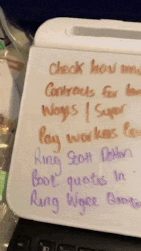 Check how
Contracts for
Wages / Super
Pay workers
Ring Scott
Book quotes in
Ring Wynee